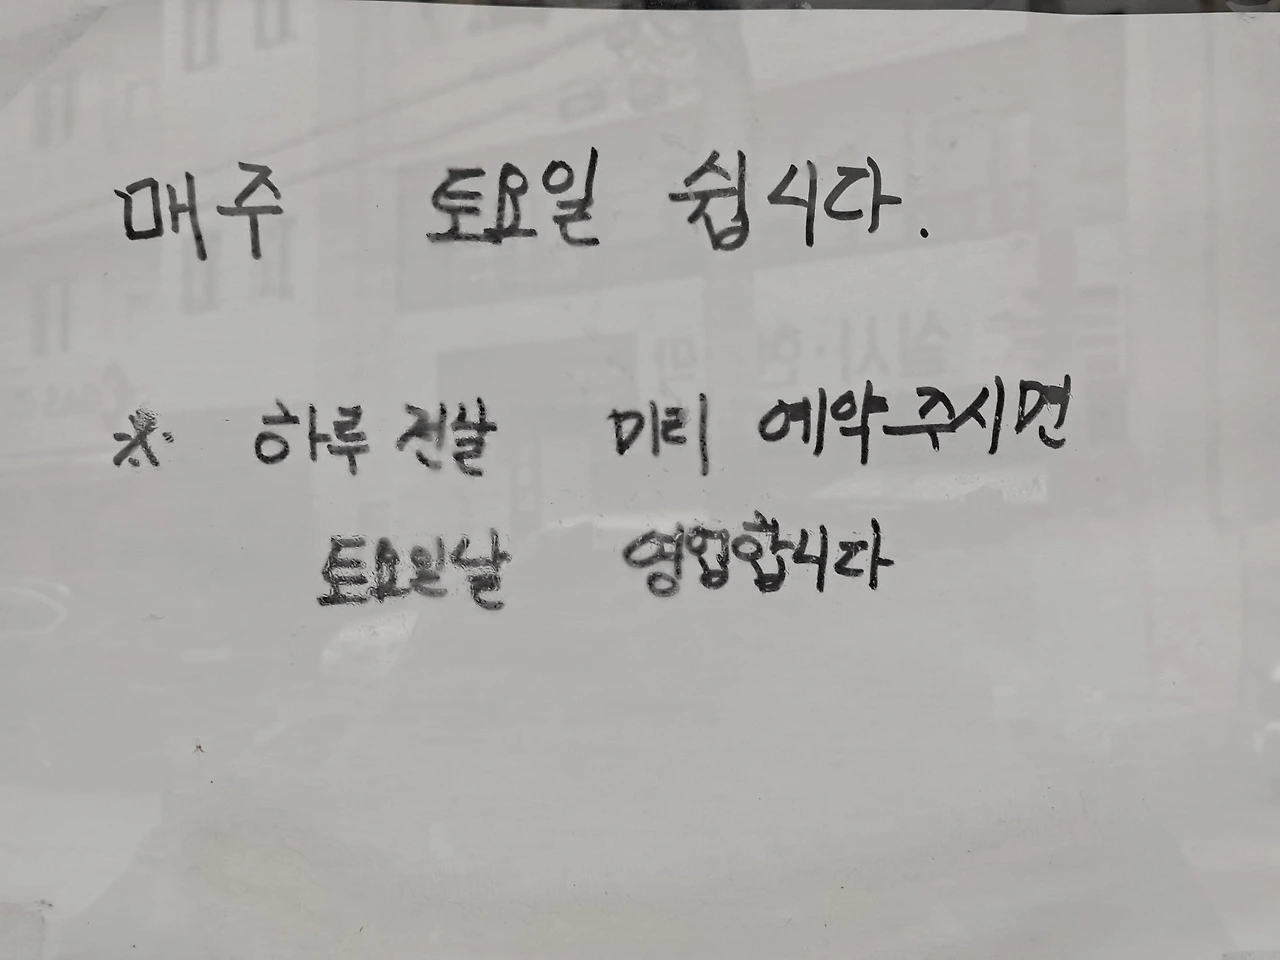 매주 토요일 쉽니다.
※ 하루 전날 미리 예약주시면
토요일날 영업합니다